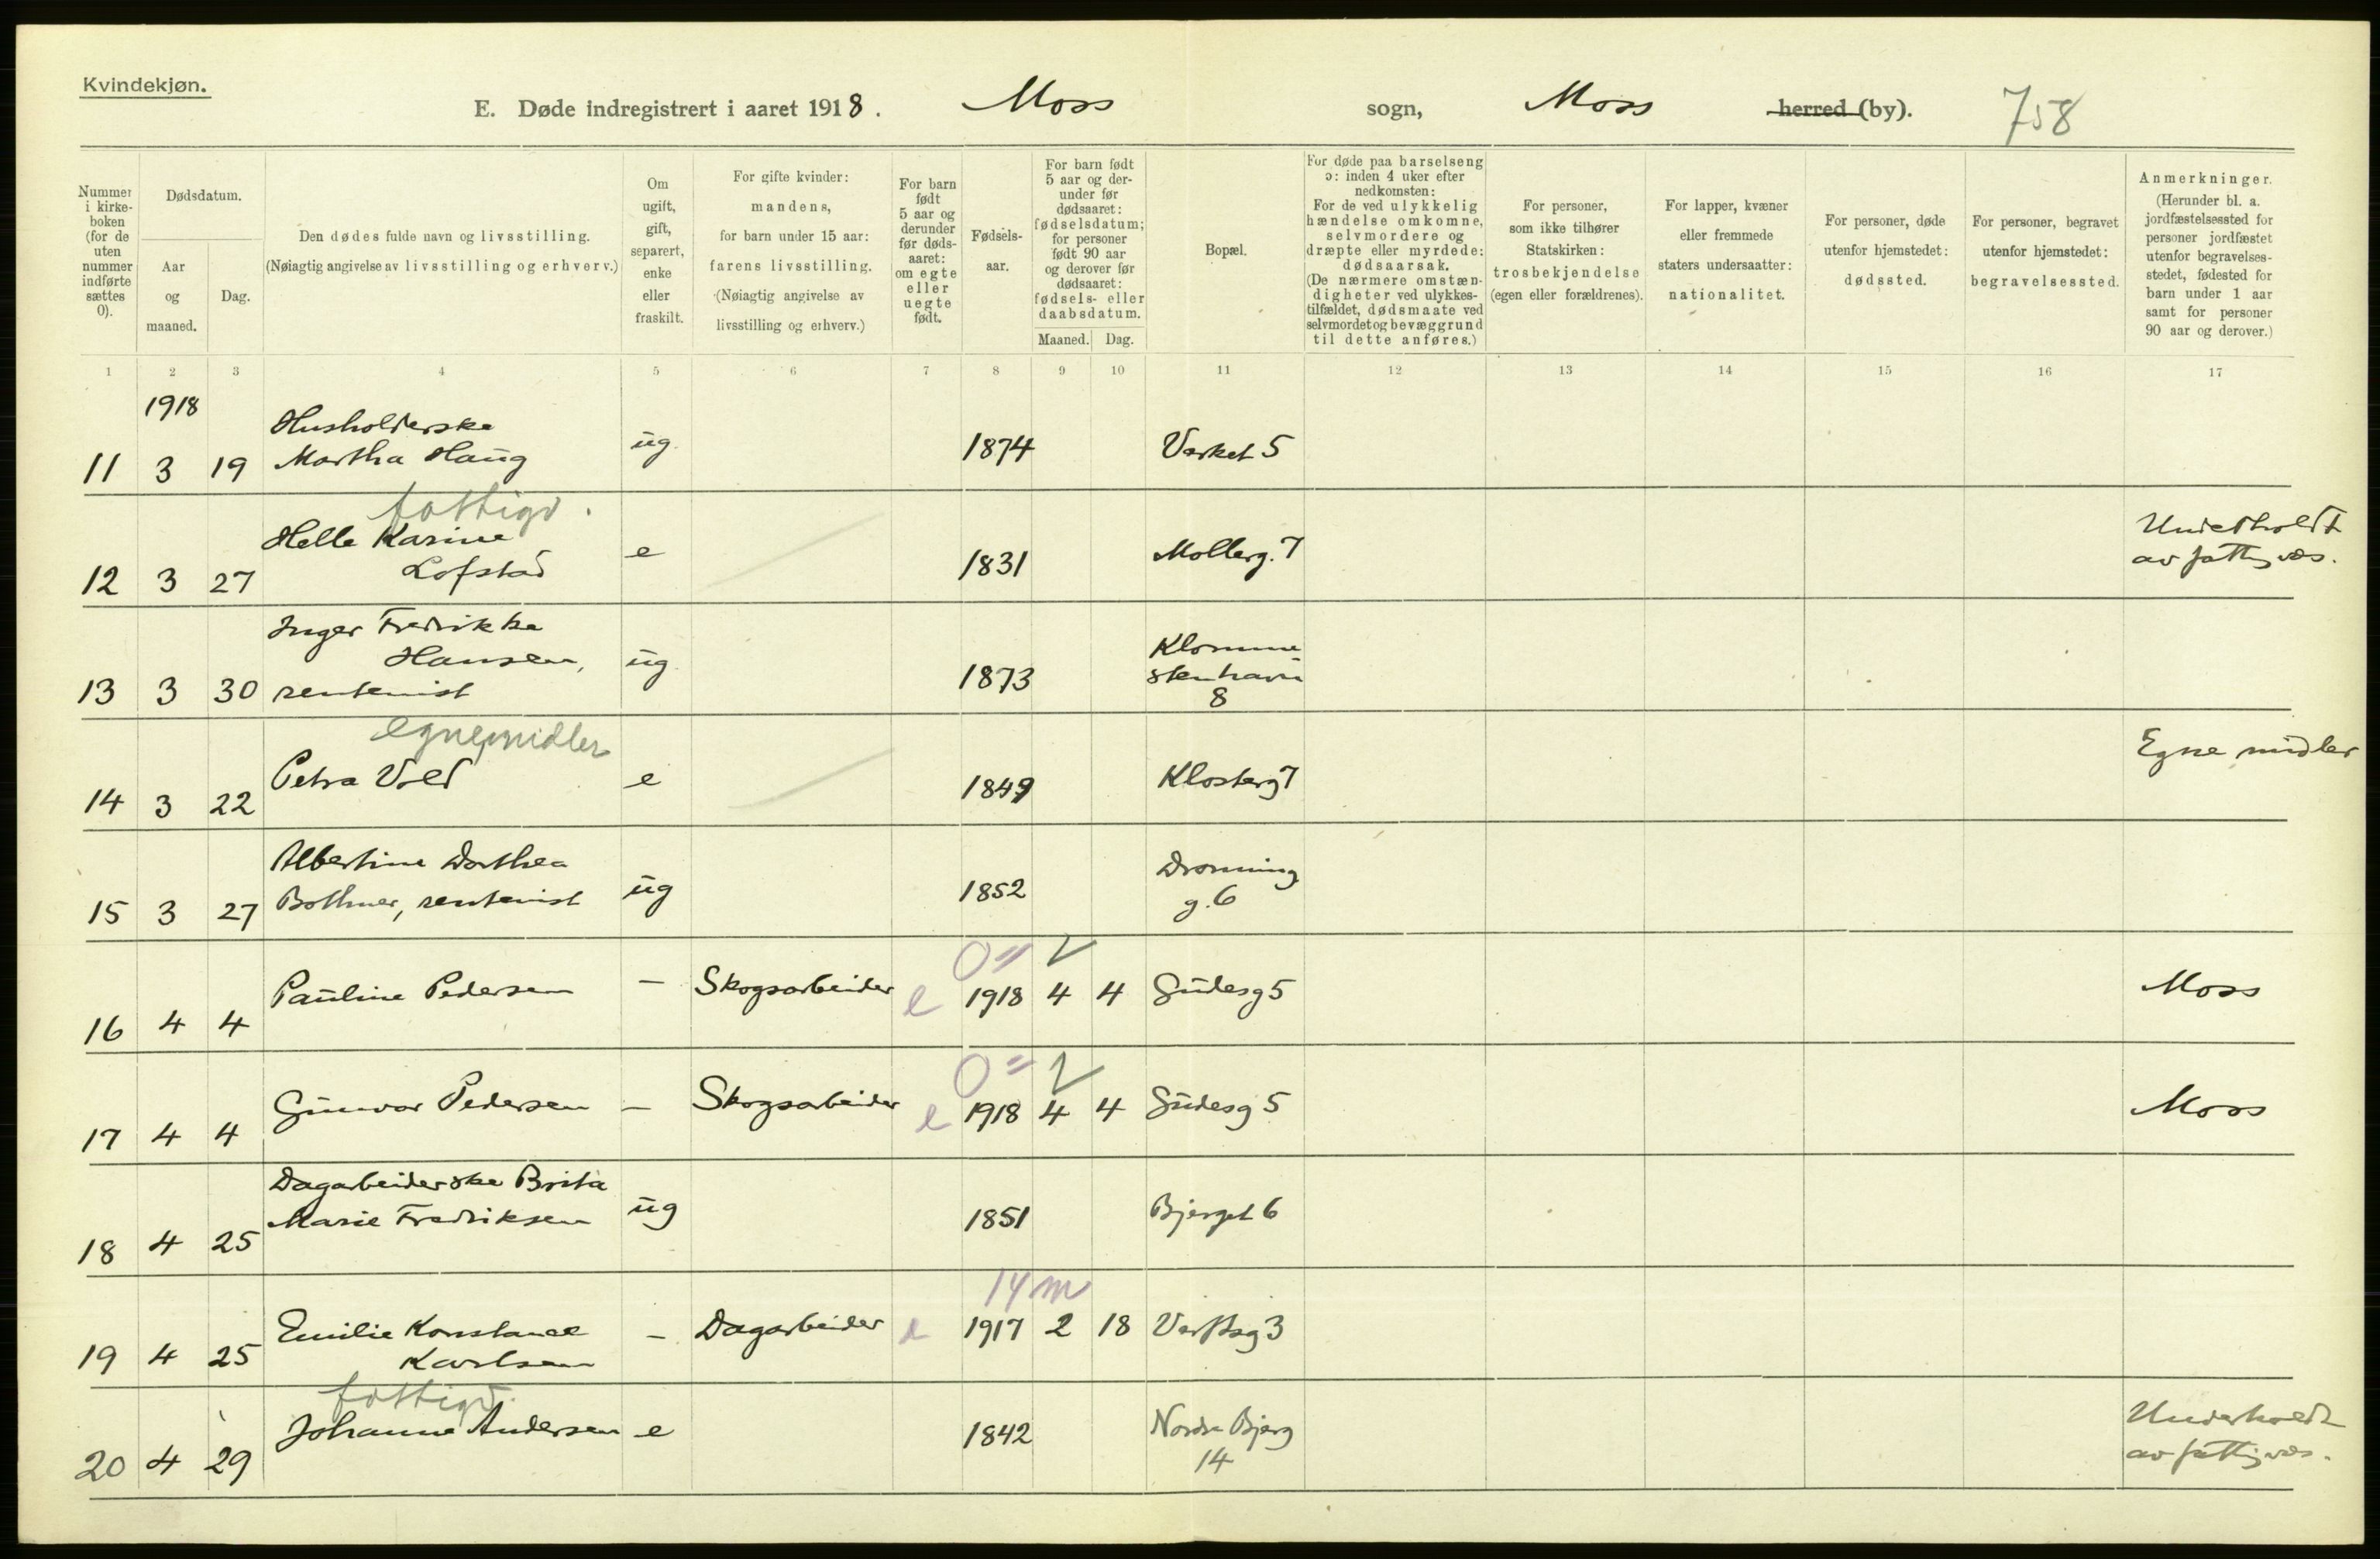 Kvindekjøn.
E. Døde indregistrert i aaret 1918. Moss sogn, Moss herred (by). 758
Nummer i kirkeboken (for de uten nummer indførte sættes 0).
Dødsdatum.
Aar og maaned.
Dag.
Den dødes fulde navn og livsstilling.
(Nøiagtig angivelse av livsstilling og erhverv.)
Om ugift, gift, separert, enke eller fraskilt.
For gifte kvinder: mandens, for barn under 15 aar: farens livsstilling.
(Nøiagtig angivelse av livsstilling og erhverv.)
For barn født 5 aar og derunder før dødsaaret: om egte eller uegte født.
Fødselsaar.
For barn født 5 aar og derunder før dødsaaret: fødselsdatum; for personer født 90 aar og derover før dødsaaret: fødsels- eller daabsdatum.
Maaned. Dag.
Bopæl.
For døde paa barselseng ɔ: inden 4 uker efter nedkomsten:
For de ved ulykkelig hændelse omkomne, selvmordere og dræpte eller myrdede: dødsaarsak.
(De nærmere omstændigheter ved ulykkestilfældet, dødsmaate ved selvmordet og bevæggrund til dette anføres.)
For personer, som ikke tilhører Statskirken: trosbekjendelse (egen eller forældrenes).
For lapper, kvæner eller fremmede staters undersaatter: nationalitet.
For personer, døde utenfor hjemstedet: dødssted.
For personer, begravet utenfor hjemstedet: begravelsessted.
Anmerkninger.
(Herunder bl. a. jordfæstelsessted for personer jordfæstet utenfor begravelsesstedet, fødested for barn under 1 aar samt for personer 90 aar og derover.)
1 2 3 4 5 6 7 8 9 10 11 12 13 14 15 16 17
1918
Husholderske
11 3 19 Martha Haug ug. 1874 Værket 5
fattigd.
Helle Karine Underholdt
12 3 27 Lofstad e 1831 Møllerg. 7 av fattigvæs.
Inger Fredrikke
Hansen, ug. Klomme
13 3 30 rentenist 1873 stenhavn
8
egne midler
14 3 22 Petra Vold e 1849 Klosterg 7 Egne midler
Albertine Dorthea Dronning
15 3 27 Bothner, rentenist ug 1852 g. 6
0 " V
16 4 4 Pauline Pedersen — Skogsarbeider e 1918 4 4 Gudesg 5 Moss
0 " V
17 4 4 Gunvor Pedersen — Skogsarbeider e 1918 4 4 Gudesg 5 Moss
Dagarbeiderske Brita
18 4 25 Marie Fredriksen ug 1851 Bjerget 6
14 m
Emilie Konstance
19 4 25 Karlsen — Dagarbeider e 1917 2 18 Værftsg 3
fattigd.
Johanne Andersen e 1842 Nordre Bjerg Underholdt
20 4 29 14 av fattigvæs.